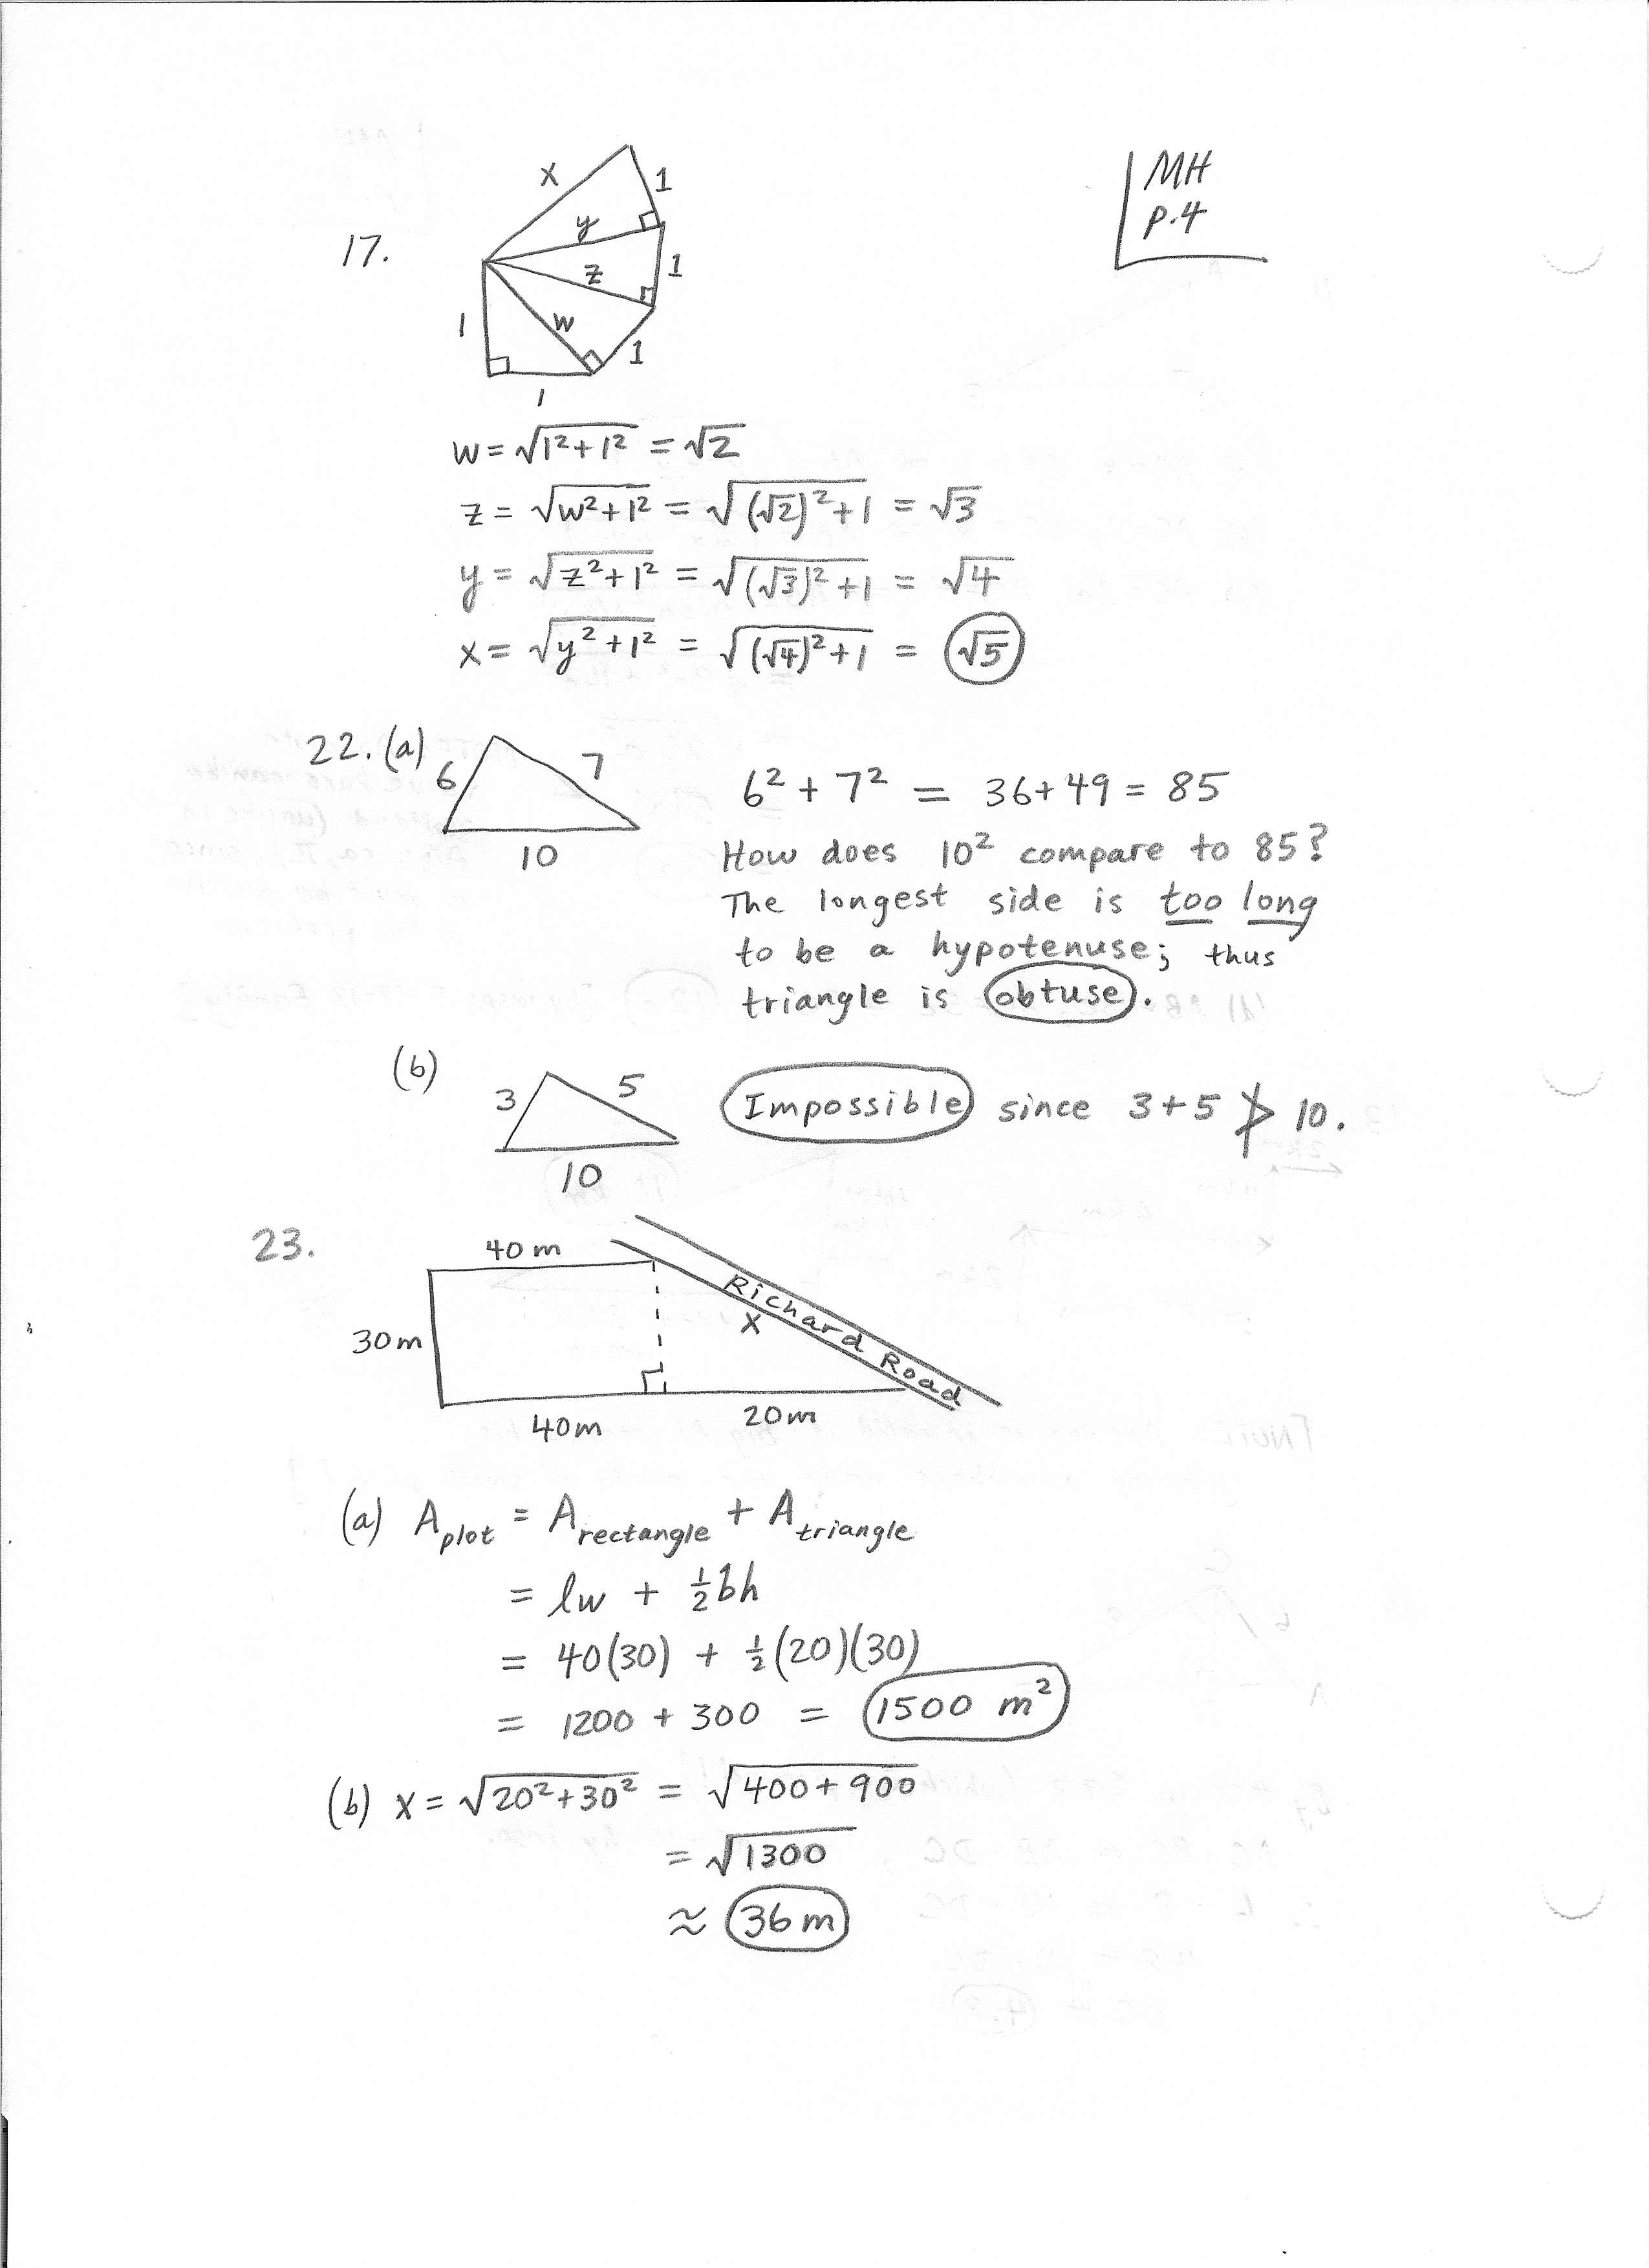 MH
p.4
17.
x
1
y
1
z
1
w
1
1
w = √(1² + 1²) = √2
z = √(w² + 1²) = √((√2)² + 1) = √3
y = √(z² + 1²) = √((√3)² + 1) = √4
x = √(y² + 1²) = √((√4)² + 1) = √5
22. (a)
6
7
10
6² + 7² = 36 + 49 = 85
How does 10² compare to 85?
The longest side is too long
to be a hypotenuse; thus
triangle is obtuse.
(b)
3
5
10
Impossible since 3 + 5 ≯ 10.
23.
40 m
30 m
Richard Road
x
40 m
20 m
(a) A plot = A rectangle + A triangle
= lw + ½bh
= 40(30) + ½(20)(30)
= 1200 + 300 = 1500 m²
(b) x = √(20² + 30²) = √(400 + 900)
= √1300
≈ 36 m